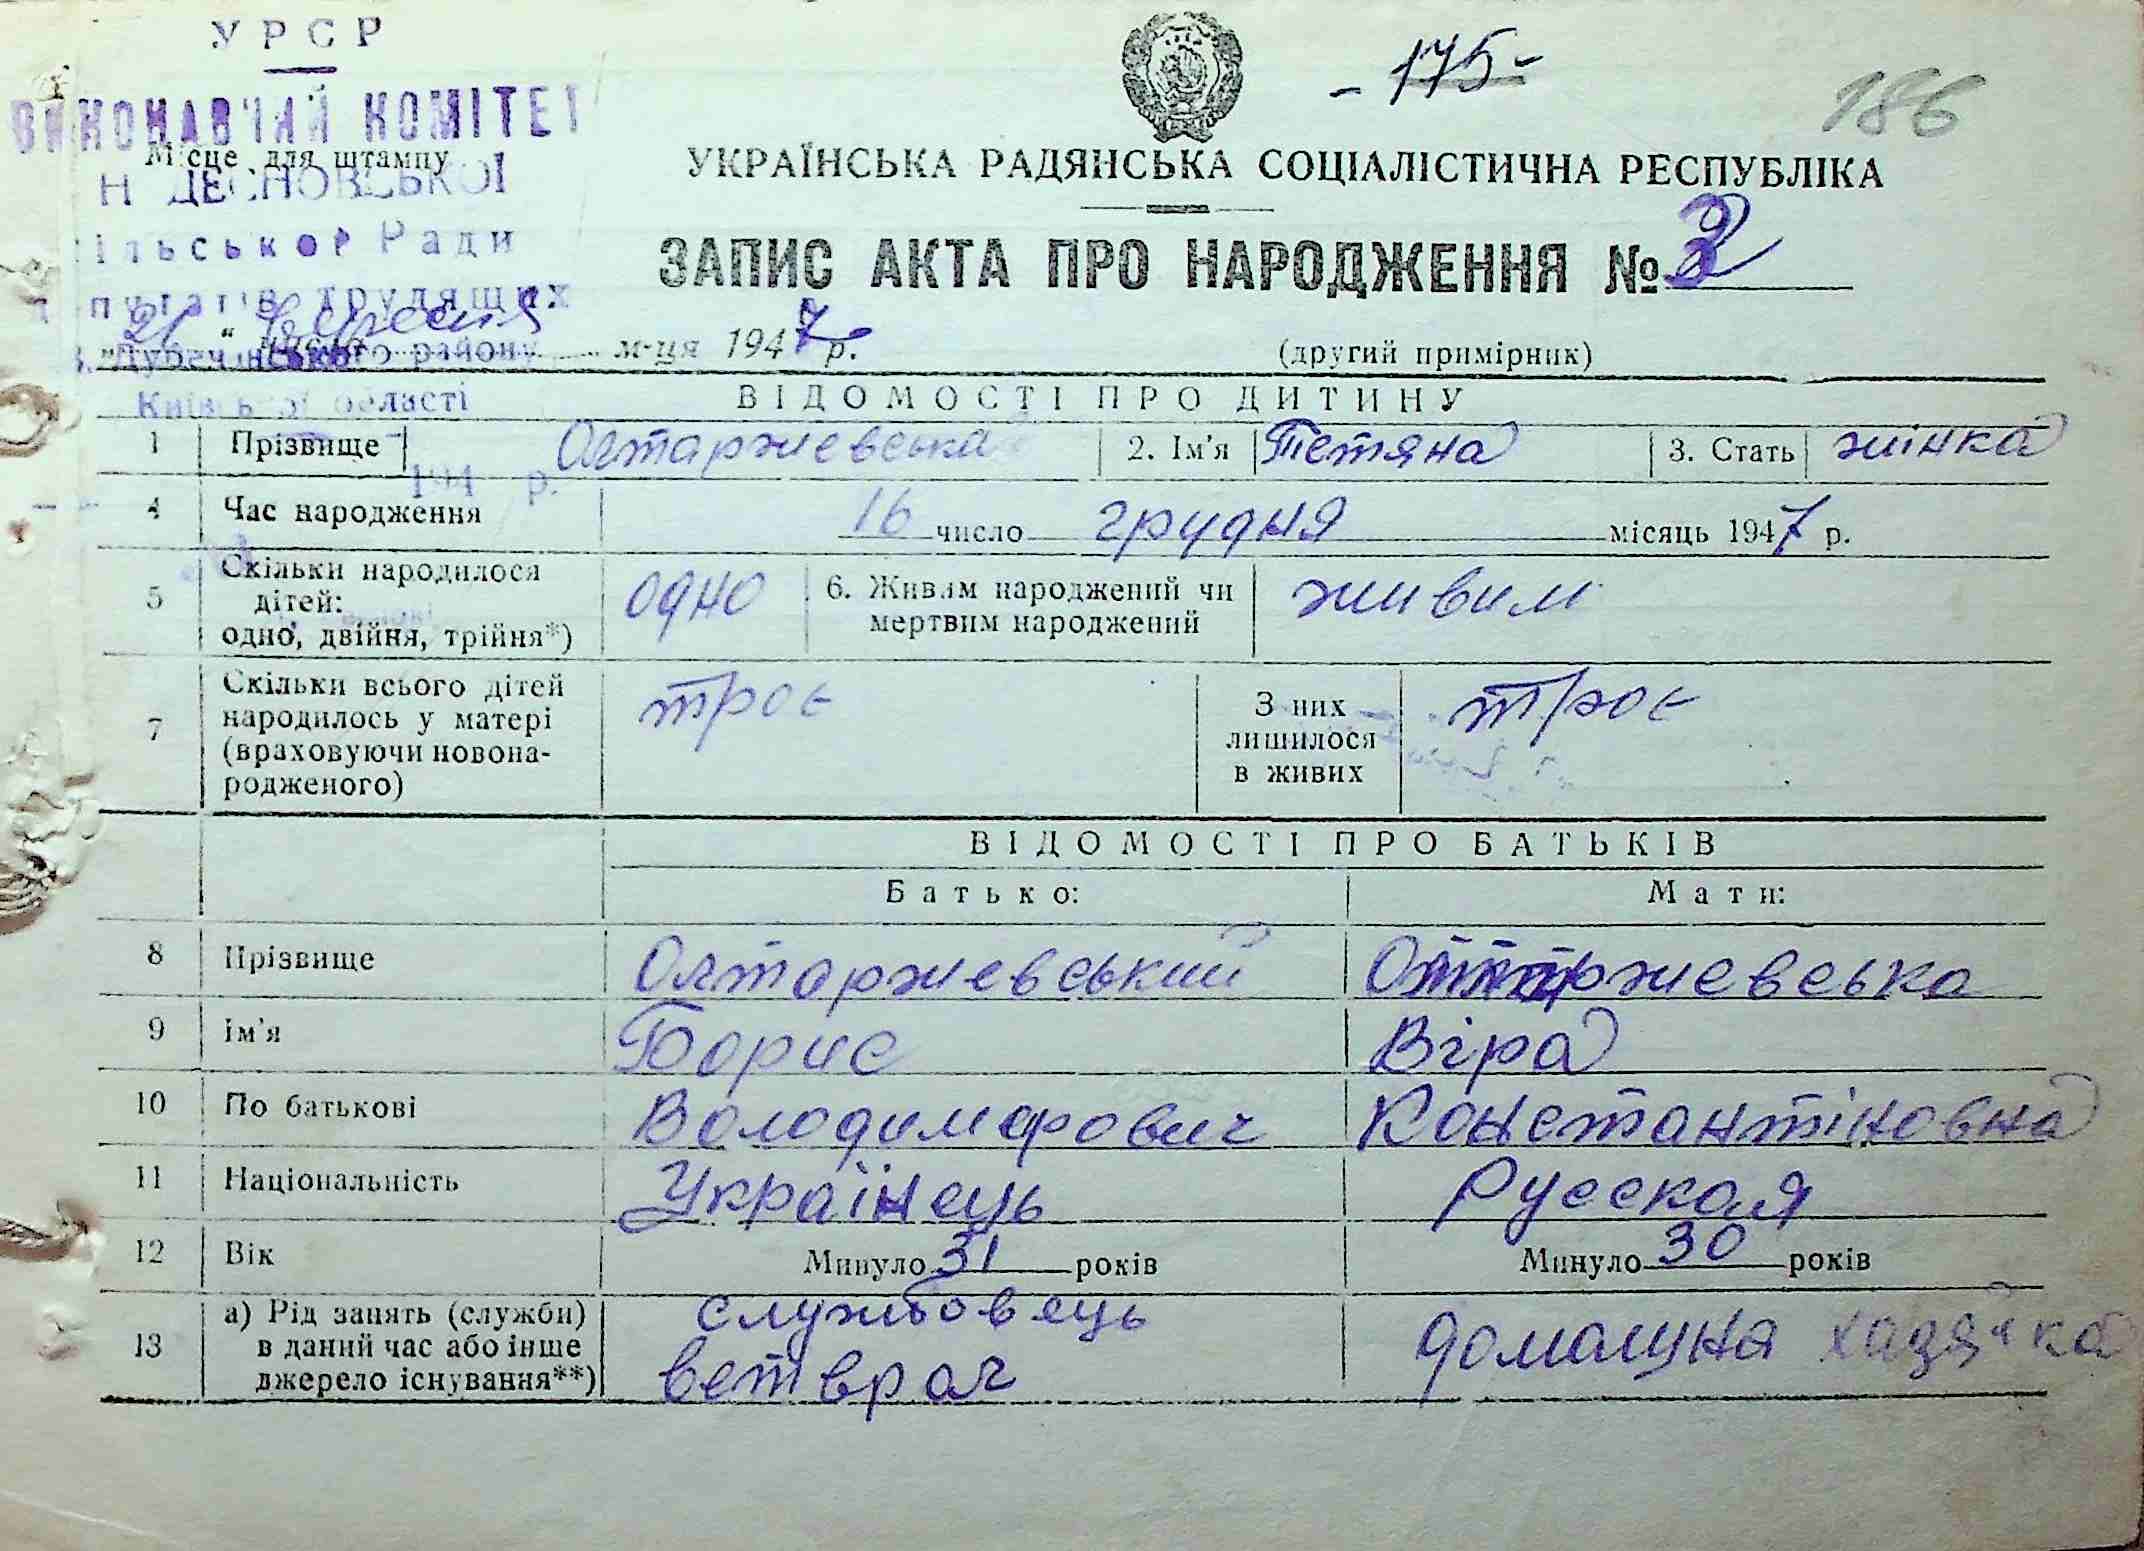 УРСР
ВИКОНАВЧИЙ КОМІТЕТ
Місце для штампу
Н ДЕСНОВСЬКОЇ
ільської Ради
путатів трудящих
Дубечанського району
Київської області
194 р.
- 175 -
186
УКРАЇНСЬКА РАДЯНСЬКА СОЦІАЛІСТИЧНА РЕСПУБЛІКА
ЗАПИС АКТА ПРО НАРОДЖЕННЯ №
„21“ вересня м-ця 1947 р.
(другий примірник)
ВІДОМОСТІ ПРО ДИТИНУ
1 Прізвище Олтаржевська 2. Ім'я Тетяна 3. Стать жінка
4 Час народження 16 число грудня місяць 1947 р.
5 Скільки народилося дітей: одно, двійня, трійня*) одно 6. Живим народжений чи мертвим народжений живим
7 Скільки всього дітей народилось у матері (враховуючи новонародженого) троє З них лишилося в живих троє
ВІДОМОСТІ ПРО БАТЬКІВ
Батько: Мати:
8 Прізвище Олтаржевський Олтаржевська
9 Ім'я Борис Віра
10 По батькові Володимирович Константіновна
11 Національність Українець Русская
12 Вік Минуло 31 років Минуло 30 років
13 а) Рід занять (служби) в даний час або інше джерело існування**) службовець ветврач домашна хазяйка